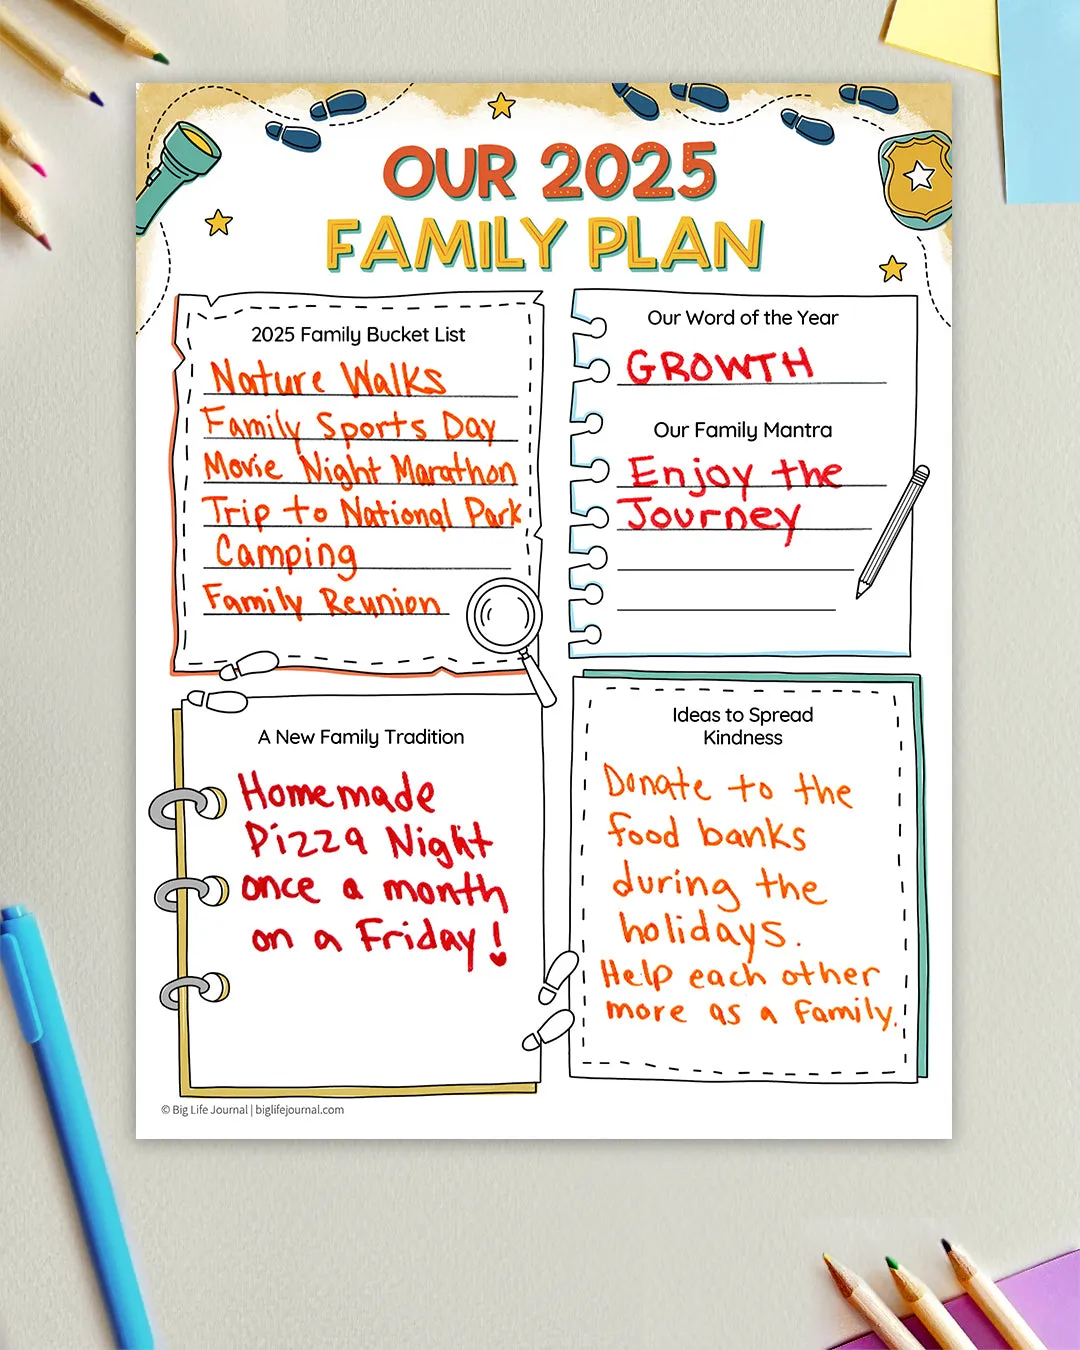 OUR 2025
FAMILY PLAN
2025 Family Bucket List
Nature Walks
Family Sports Day
Movie Night Marathon
Trip to National Park
Camping
Family Reunion
Our Word of the Year
GROWTH
Our Family Mantra
Enjoy the
Journey
A New Family Tradition
Homemade
Pizza Night
once a month
on a Friday!
Ideas to Spread
Kindness
Donate to the
food banks
during the
holidays.
Help each other
more as a family.
© Big Life Journal | biglifejournal.com